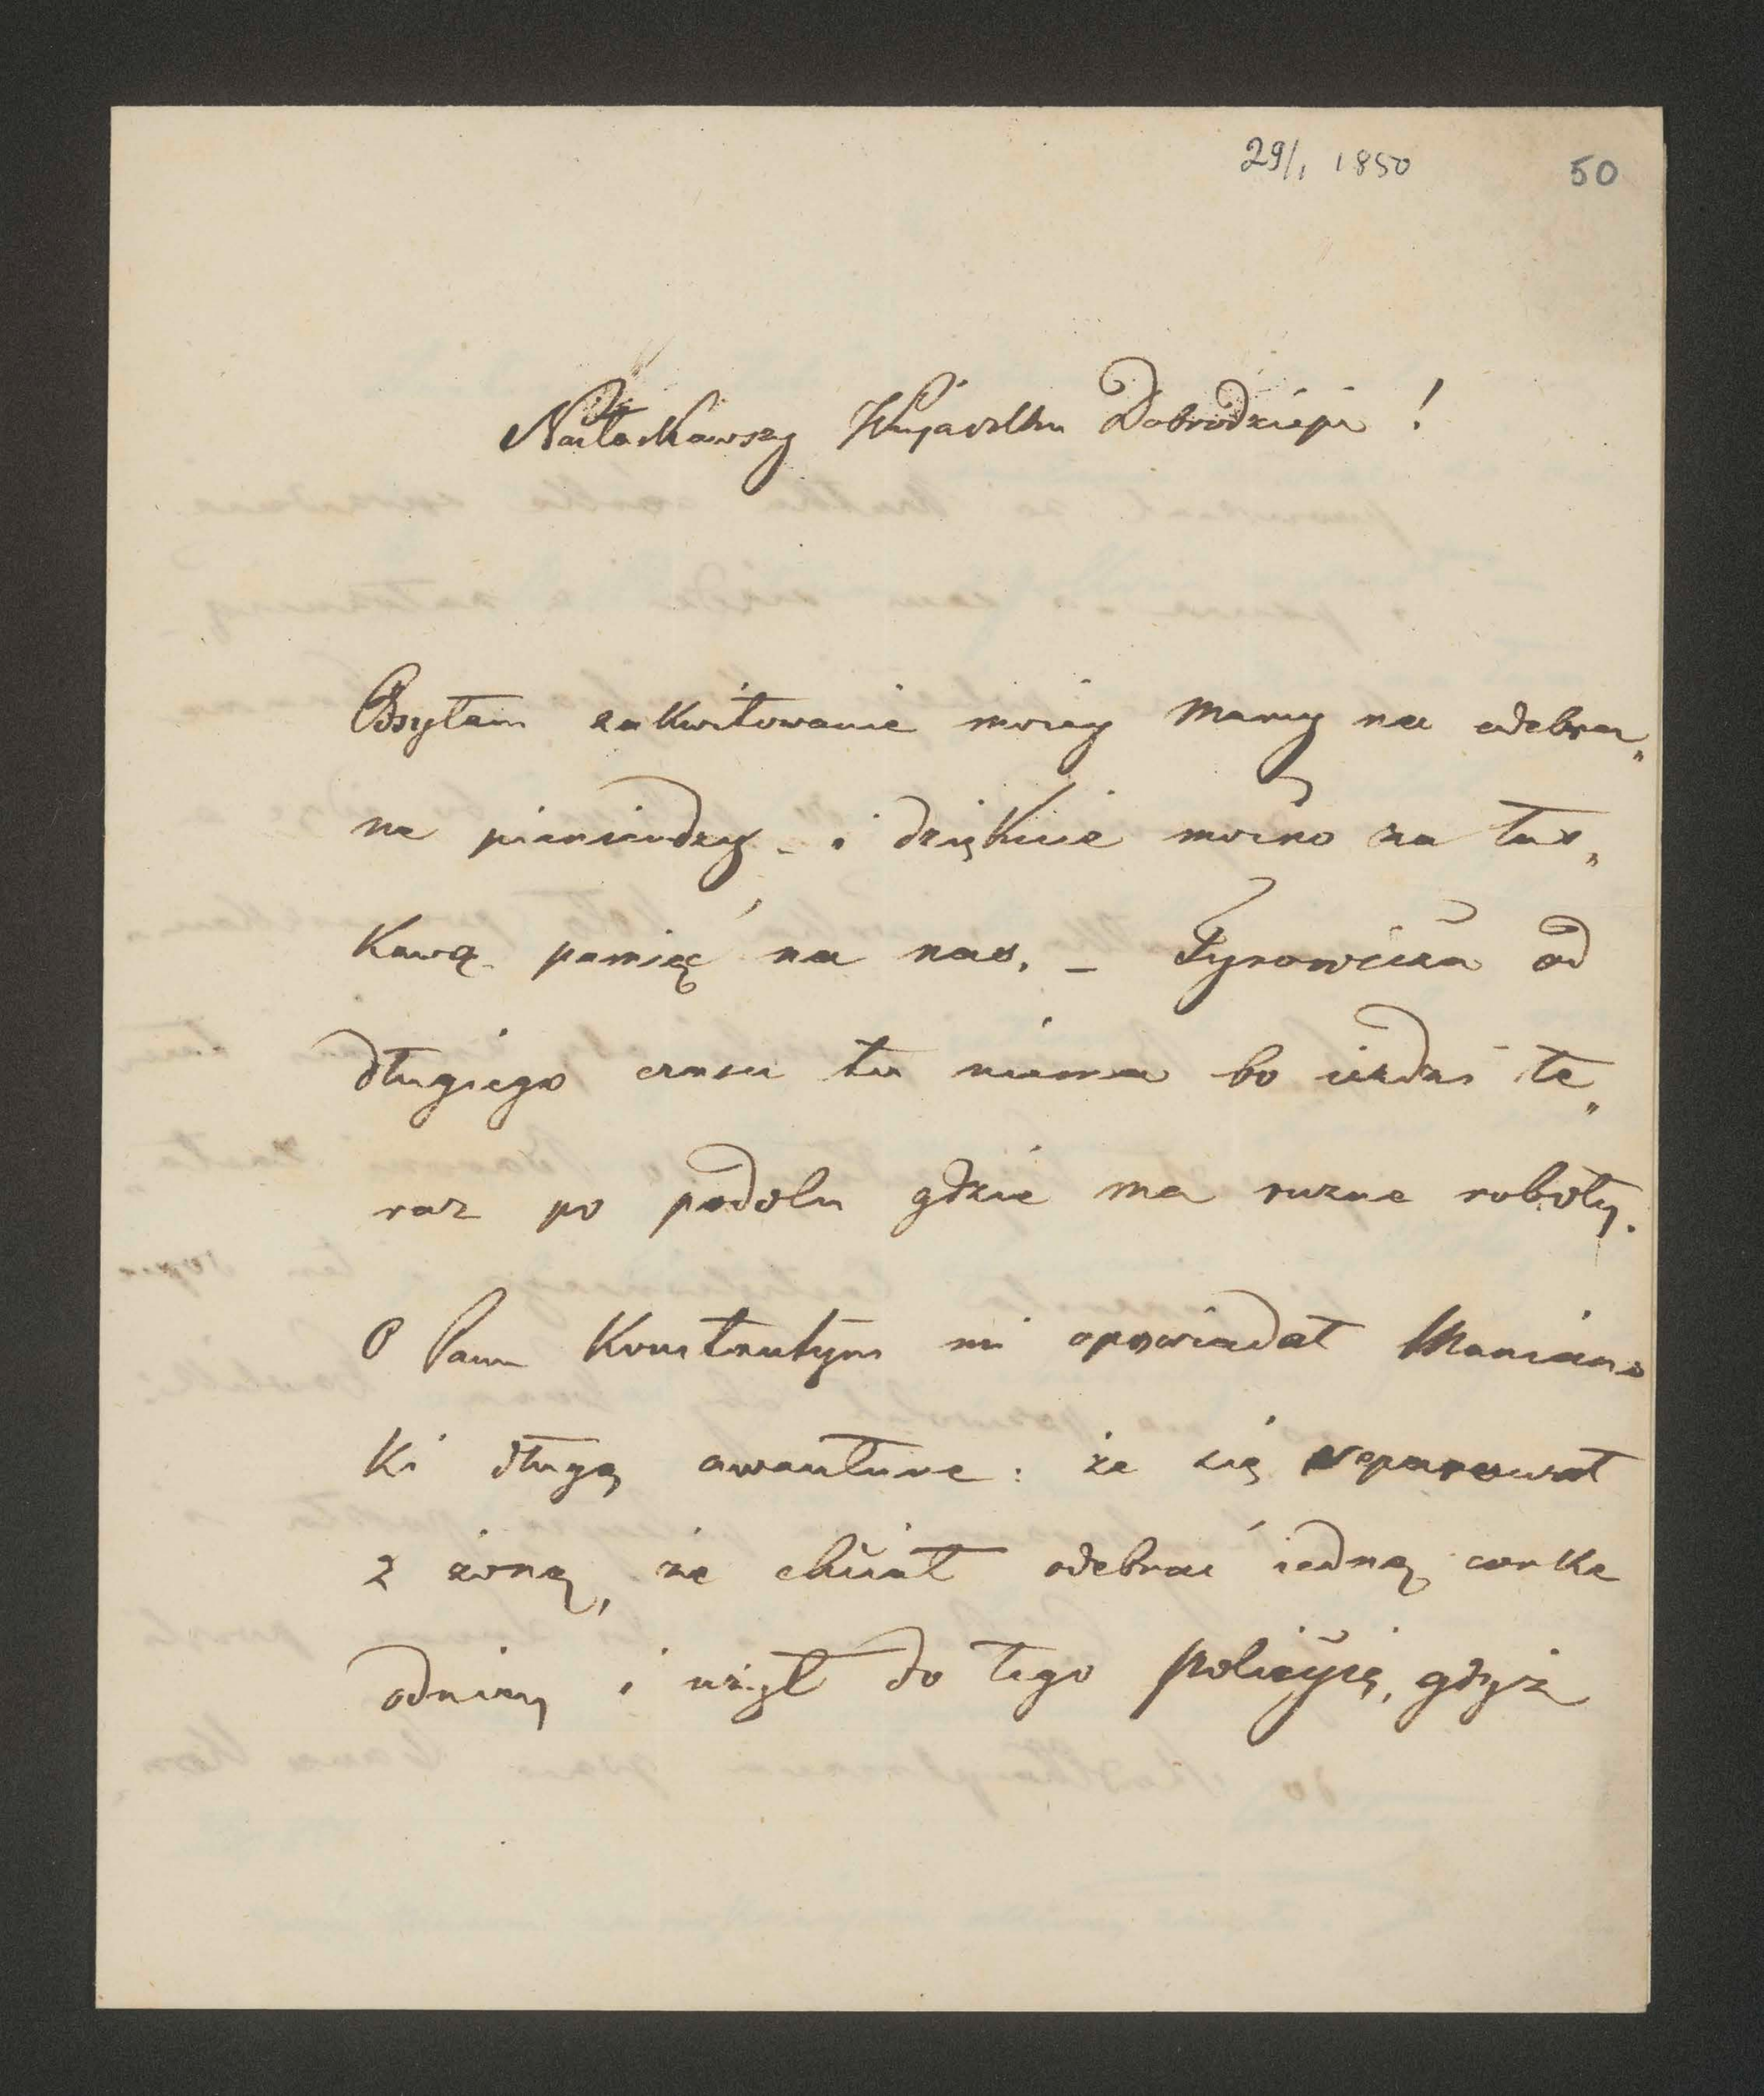 29/1 1850
50
Nałaskawszy Wujaszku Dobrodzieju !
Odsyłam zakwitowanie moiey Mamy na odebra„
ne pieniendzy - i dziękuie mocno za łas„
kawą pamięć na nas. - Tyrowicza od
długiego czasu tu niema bo ieździ te„
raz po podolu gdzie ma rużne roboty.
O Panu Konstantym mi opowiadał
ki długą awanture : że się separował
z żoną, że chciał odebrać iedną corke
odniey i użył do tego policyią, gdyż